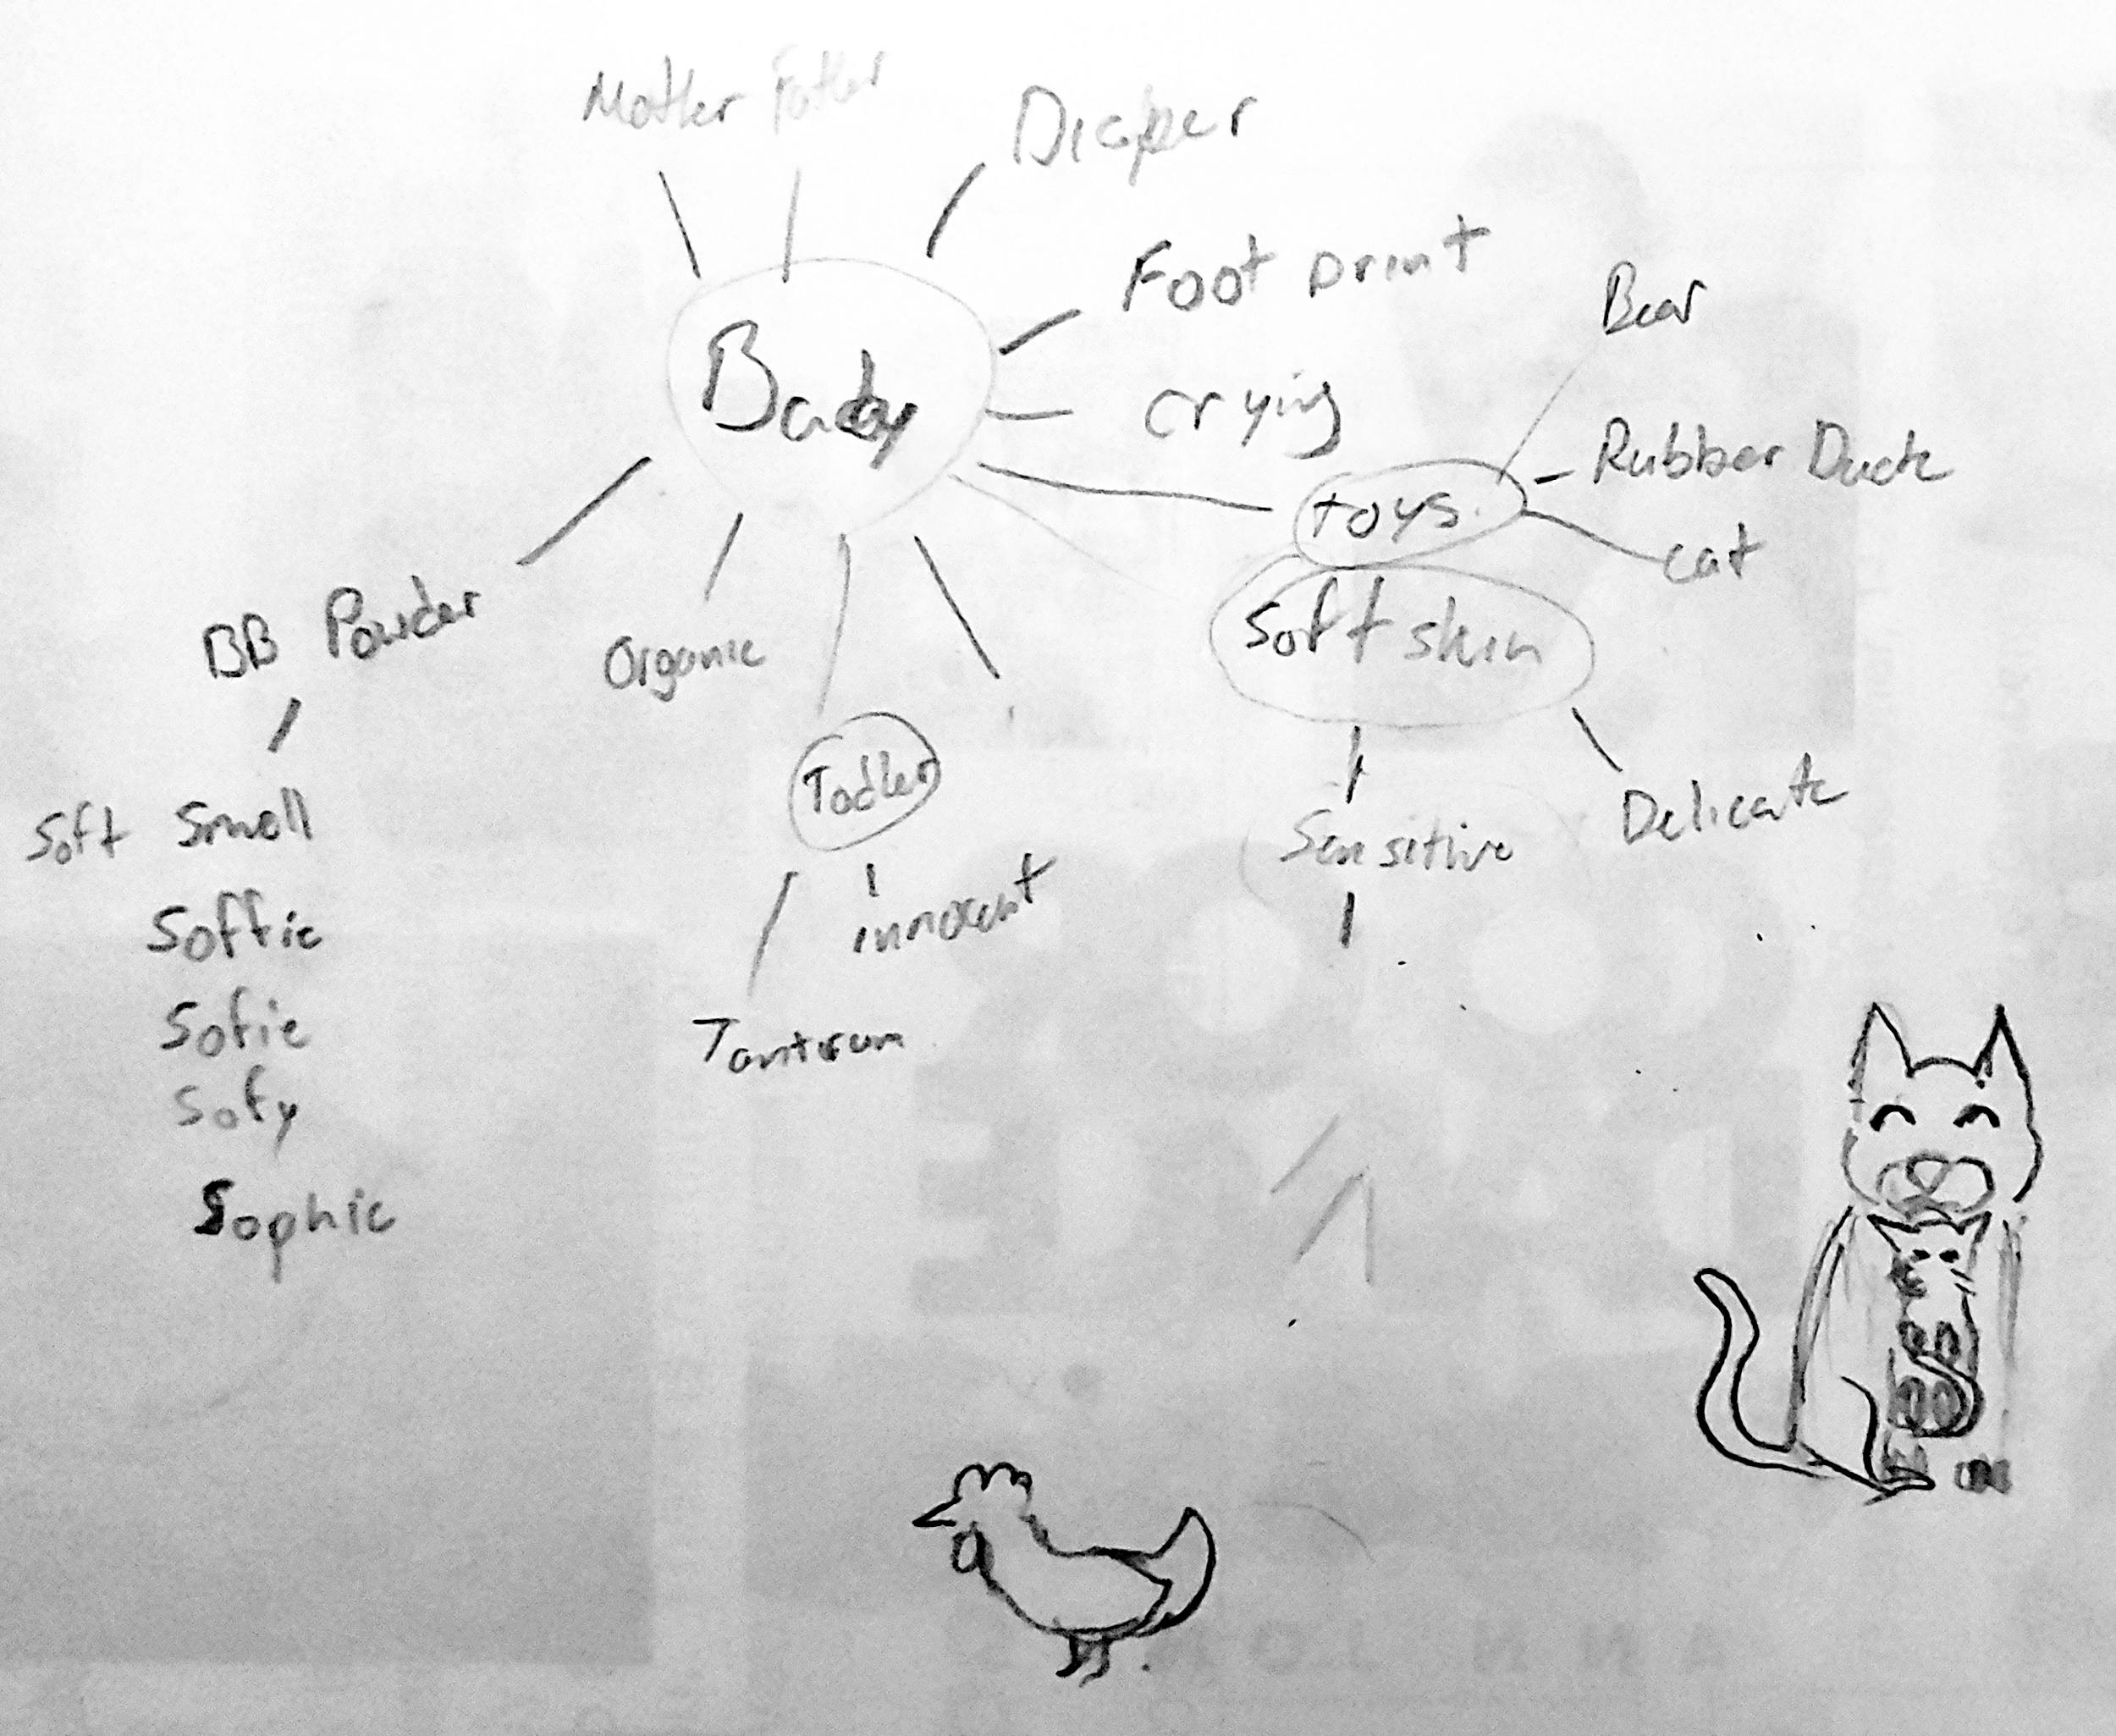 Mother Father
Diaper
Foot print
Bear
Baby
crying
Rubber Duck
toys
cat
BB Powder
Organic
Soft skin
Todler
Soft Smell
Sensitive
Delicate
innocent
Soffie
Sofie
Tantrum
Sofy
Sophie